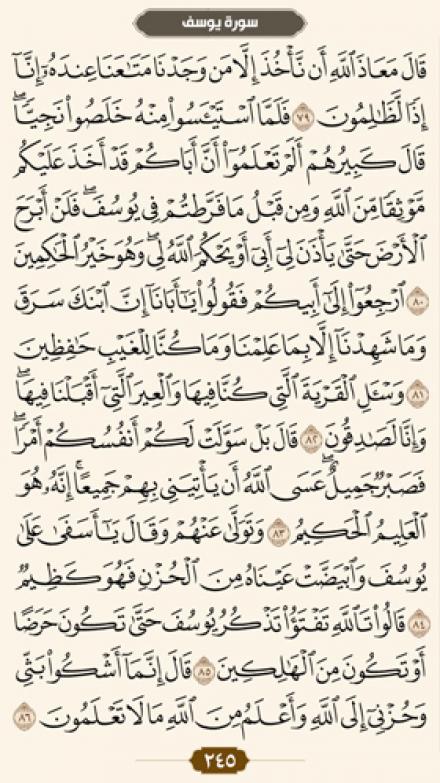 سورة يوسف
قَالَ مَعَاذَ ٱللَّهِ أَن نَّأْخُذَ إِلَّا مَن وَجَدْنَا مَتَـٰعَنَا عِندَهُۥٓ إِنَّآ
إِذًا لَّظَـٰلِمُونَ ٧٩ فَلَمَّا ٱسْتَيْـَٔسُوا۟ مِنْهُ خَلَصُوا۟ نَجِيًّا ۖ
قَالَ كَبِيرُهُمْ أَلَمْ تَعْلَمُوٓا۟ أَنَّ أَبَاكُمْ قَدْ أَخَذَ عَلَيْكُم
مَّوْثِقًا مِّنَ ٱللَّهِ وَمِن قَبْلُ مَا فَرَّطتُمْ فِى يُوسُفَ ۖ فَلَنْ أَبْرَحَ
ٱلْأَرْضَ حَتَّىٰ يَأْذَنَ لِىٓ أَبِىٓ أَوْ يَحْكُمَ ٱللَّهُ لِى ۖ وَهُوَ خَيْرُ ٱلْحَـٰكِمِينَ
٨٠ ٱرْجِعُوٓا۟ إِلَىٰٓ أَبِيكُمْ فَقُولُوا۟ يَـٰٓأَبَانَآ إِنَّ ٱبْنَكَ سَرَقَ
وَمَا شَهِدْنَآ إِلَّا بِمَا عَلِمْنَا وَمَا كُنَّا لِلْغَيْبِ حَـٰفِظِينَ
٨١ وَسْـَٔلِ ٱلْقَرْيَةَ ٱلَّتِى كُنَّا فِيهَا وَٱلْعِيرَ ٱلَّتِىٓ أَقْبَلْنَا فِيهَا ۖ
وَإِنَّا لَصَـٰدِقُونَ ٨٢ قَالَ بَلْ سَوَّلَتْ لَكُمْ أَنفُسُكُمْ أَمْرًا ۖ
فَصَبْرٌ جَمِيلٌ ۖ عَسَى ٱللَّهُ أَن يَأْتِيَنِى بِهِمْ جَمِيعًا ۚ إِنَّهُۥ هُوَ
ٱلْعَلِيمُ ٱلْحَكِيمُ ٨٣ وَتَوَلَّىٰ عَنْهُمْ وَقَالَ يَـٰٓأَسَفَىٰ عَلَىٰ
يُوسُفَ وَٱبْيَضَّتْ عَيْنَاهُ مِنَ ٱلْحُزْنِ فَهُوَ كَظِيمٌ
٨٤ قَالُوا۟ تَٱللَّهِ تَفْتَؤُا۟ تَذْكُرُ يُوسُفَ حَتَّىٰ تَكُونَ حَرَضًا
أَوْ تَكُونَ مِنَ ٱلْهَـٰلِكِينَ ٨٥ قَالَ إِنَّمَآ أَشْكُوا۟ بَثِّى
وَحُزْنِىٓ إِلَى ٱللَّهِ وَأَعْلَمُ مِنَ ٱللَّهِ مَا لَا تَعْلَمُونَ ٨٦
٢٤٥